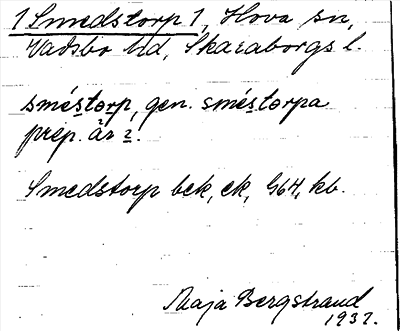 1 Smedstorp 1, Hova sn,
Vadsbo hd, Skaraborgs l.
sméstorp, gen. sméstorpa
prep. är 2.
Smedstorp bek, ek, G64, kb.
Maja Bergstrand
1937.